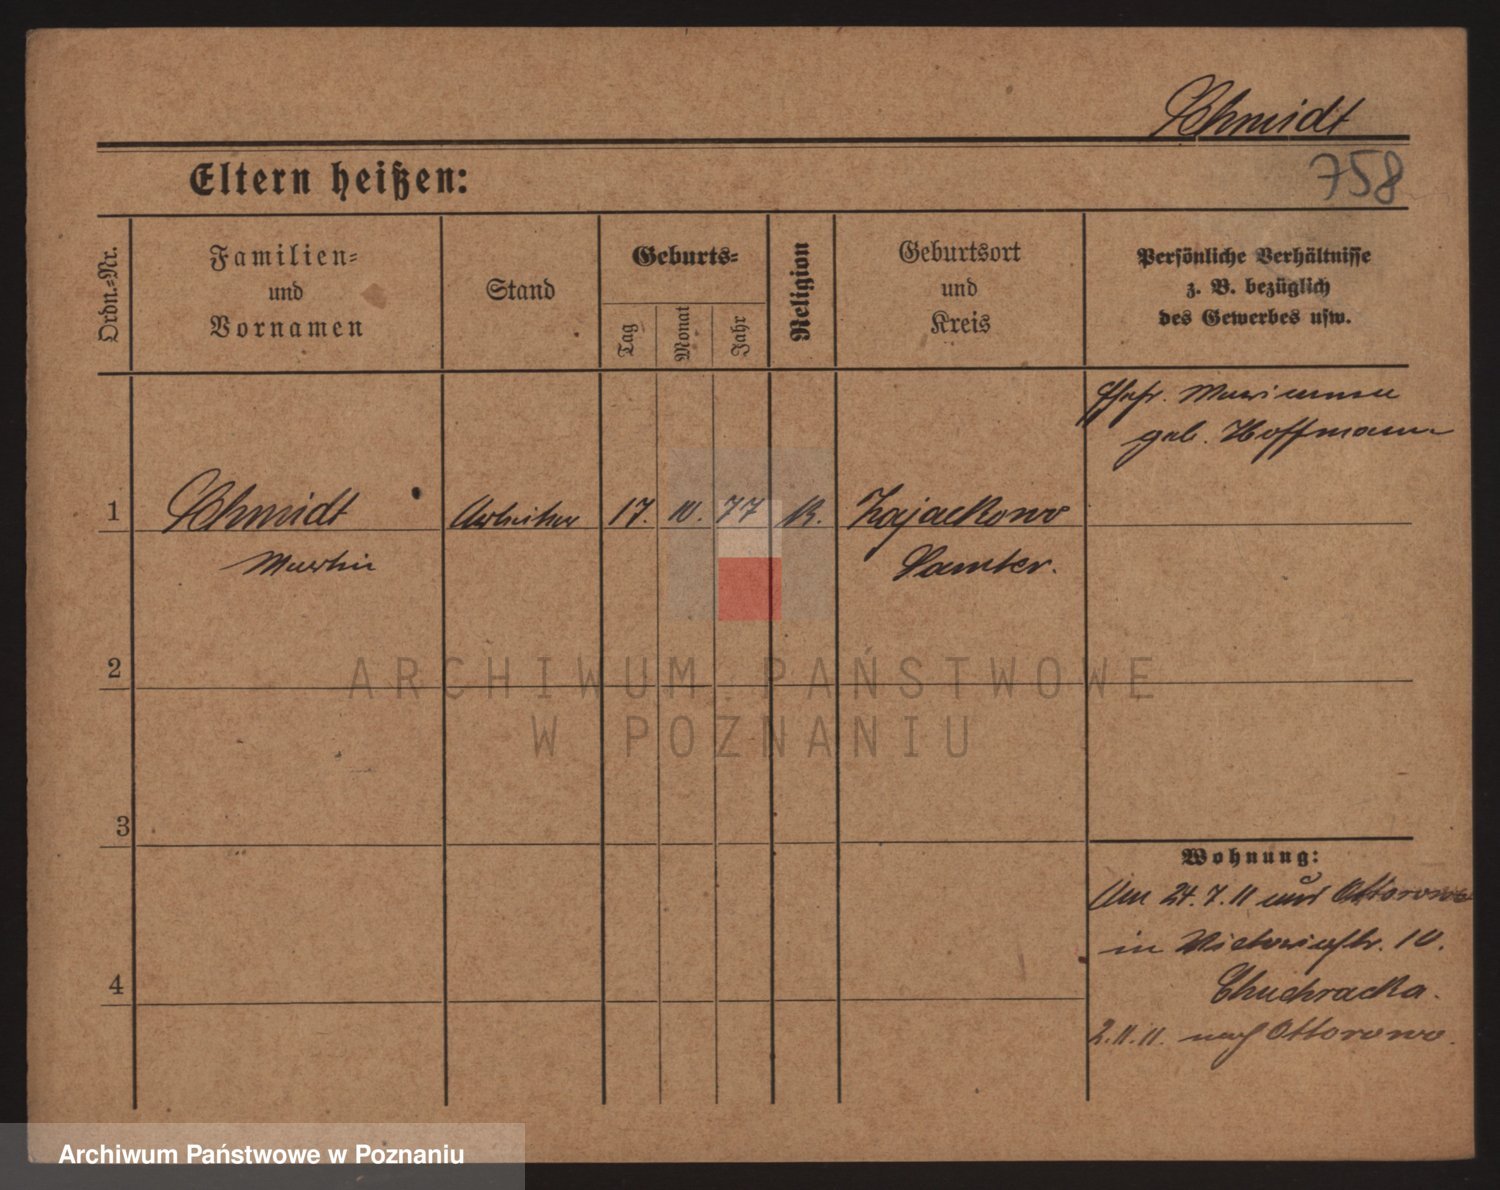 Schmidt
758
Eltern heißen:
Ordn.-Nr.
Familien-
und
Vornamen
Stand
Geburts-
Tag
Monat
Jahr
Religion
Geburtsort
und
Kreis
Persönliche Verhältnisse
z. B. bezüglich
des Gewerbes usw.
Ehefr. Marianna
geb. Hoffmann
1 Schmidt Arbeiter 17. 10. 77 Zajackowo
Martin Samter.
2
3
4
Wohnung:
Am 24.7.11 aus Ottorowo
in Victoriastr. 10.
Chudracka.
2.11.11. nach Ottorowo.
ARCHIWUM PAŃSTWOWE
W POZNANIU
Archiwum Państwowe w Poznaniu